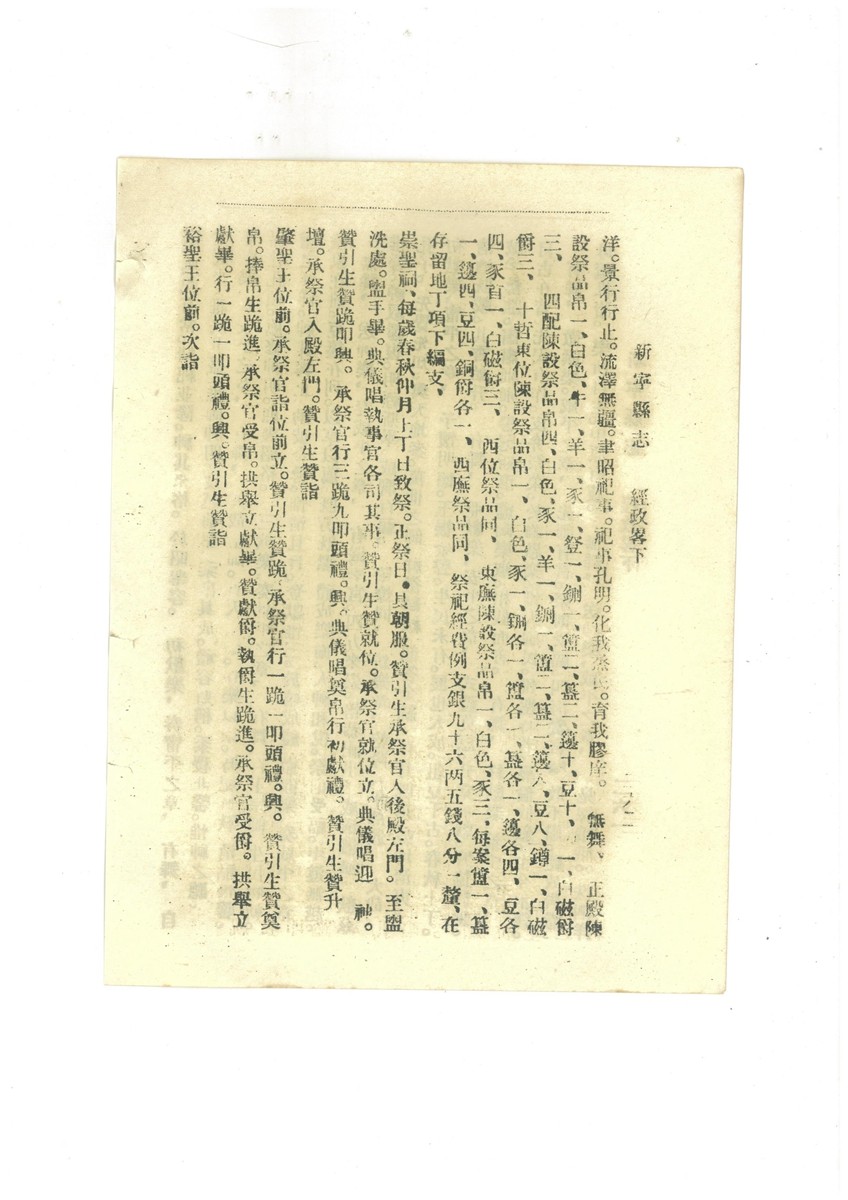 新寧縣志　經政畧下
洋。景行行止。流澤無疆。聿昭祀事。祀事孔明。化我蒸民。育我膠庠。　無舞、　正殿陳
設祭品帛一、白色、牛一、羊一、豕一、登一、鉶二、簠二、簋二、籩十、豆十、一、白磁爵
三、　四配陳設祭品帛四、白色、豕一、羊一、鉶二、簠二、簋二、籩八、豆八、鐏一、白磁
爵三、　十哲東位陳設祭品帛一、白色、豕一、鉶各一、簠各一、簋各一、籩各四、豆各
四、豕首一、白磁爵三、　西位祭品同、　東廡陳設祭品帛一、白色、豕三、每案簠一、簋
一、籩四、豆四、銅爵各一、　西廡祭品同、　祭祀經費例支銀九十六两五錢八分一釐、在
存留地丁項下編支、
崇聖祠、每歲春秋仲月上丁日致祭。正祭日。具朝服。贊引生承祭官入後殿左門。至盥
洗處。盥手畢。典儀唱執事官各司其事。贊引生贊就位。承祭官就位立。典儀唱迎　神。
贊引生贊跪叩興。承祭官行三跪九叩頭禮。興。典儀唱奠帛行初獻禮。贊引生贊升
壇。承祭官入殿左門。贊引生贊詣
肇聖王位前。承祭官詣位前立。贊引生贊跪、承祭官行一跪一叩頭禮。興。贊引生贊奠
帛。捧帛生跪進、承祭官受帛。拱舉立獻畢。贊獻爵。執爵生跪進。承祭官受爵。拱舉立
獻畢。行一跪一叩頭禮。興。贊引生贊詣
裕聖王位前。次詣